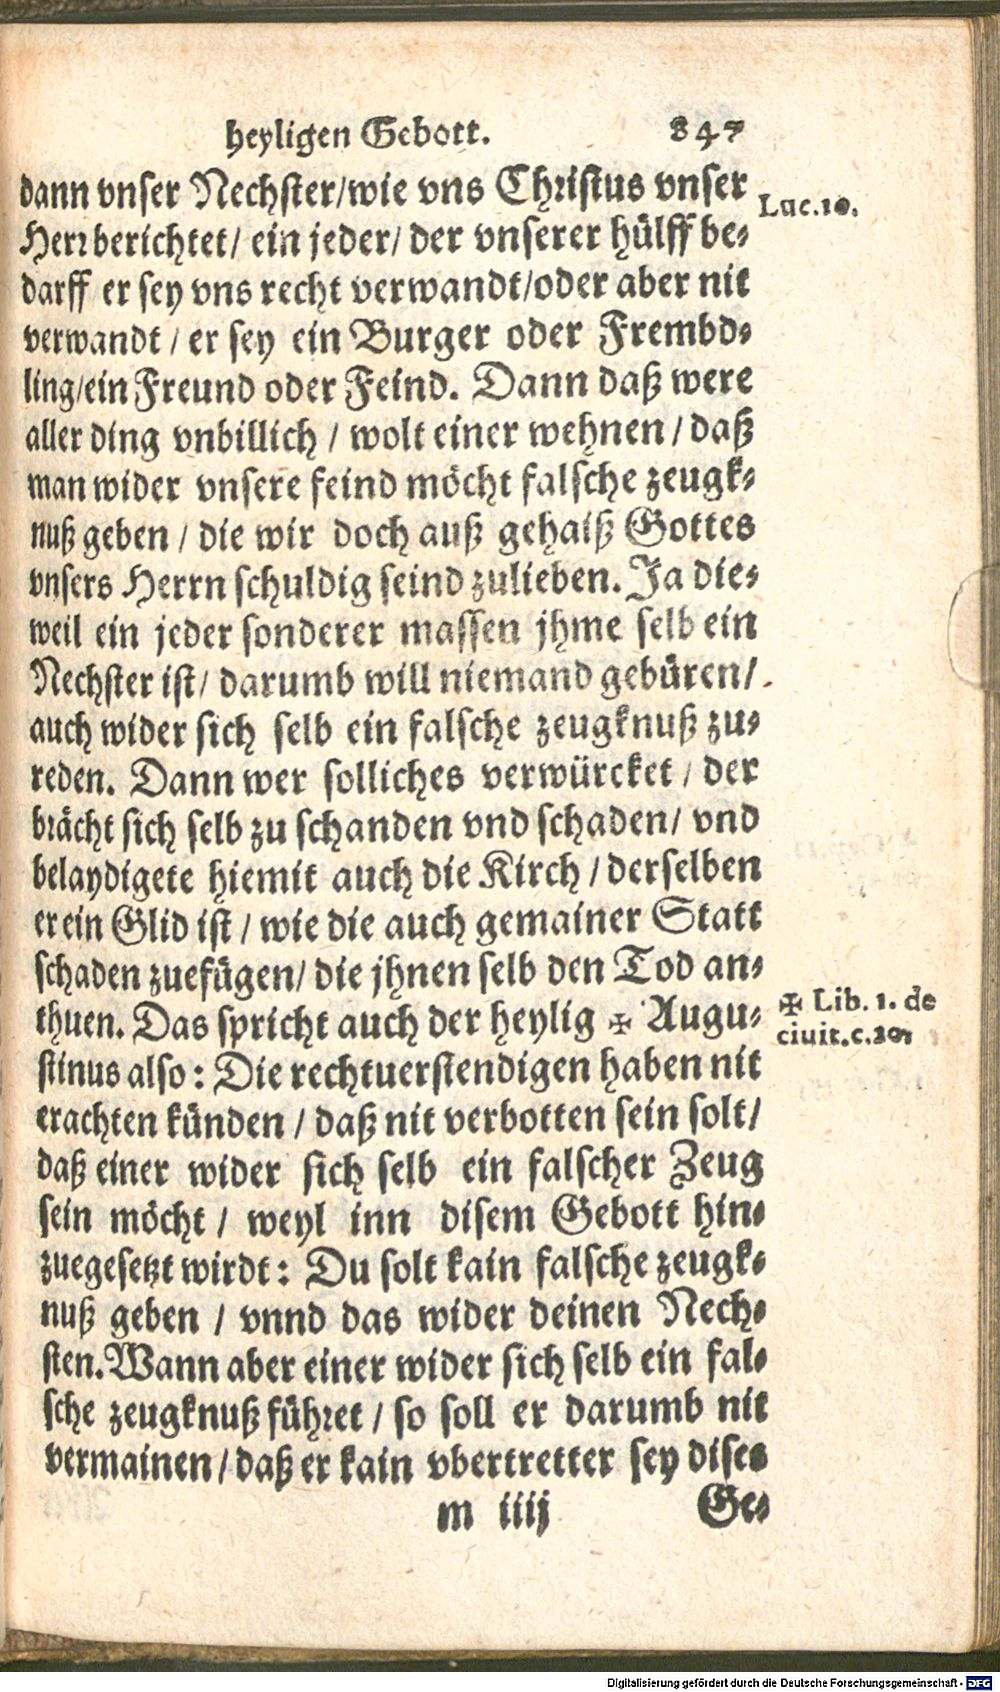 heyligen Gebott. 847
dann vnser Nechster/wie vns Christus vnser
Luc.10.
Herr berichtet/ ein jeder/ der vnserer hülff be-
darff er sey vns recht verwandt/oder aber nit
verwandt / er sey ein Burger oder Frembd-
ling/ein Freund oder Feind. Dann daß were
aller ding vnbillich / wolt einer wehnen / daß
man wider vnsere feind möcht falsche zeugk-
nuß geben / die wir doch auß gehaiß Gottes
vnsers Herrn schuldig seind zulieben. Ja die-
weil ein jeder sonderer massen jhme selb ein
Nechster ist/ darumb will niemand gebüren/
auch wider sich selb ein falsche zeugknuß zu-
reden. Dann wer solliches verwürcket / der
brächt sich selb zu schanden vnd schaden/ vnd
belaydigete hiemit auch die Kirch / derselben
er ein Glid ist / wie die auch gemainer Statt
schaden zuefügen/ die jhnen selb den Tod an-
thuen. Das spricht auch der heylig ✠ Augu-
✠ Lib. 1. de
ciuit.c.20.
stinus also: Die rechtuerstendigen haben nit
erachten künden / daß nit verbotten sein solt/
daß einer wider sich selb ein falscher Zeug
sein möcht / weyl inn disem Gebott hin-
zuegesetzt wirdt: Du solt kain falsche zeugk-
nuß geben / vnnd das wider deinen Nech-
sten. Wann aber einer wider sich selb ein fal-
sche zeugknuß führet / so soll er darumb nit
vermainen / daß er kain vbertretter sey dises
m iiij Ge-
Digitalisierung gefördert durch die Deutsche Forschungsgemeinschaft - DFG